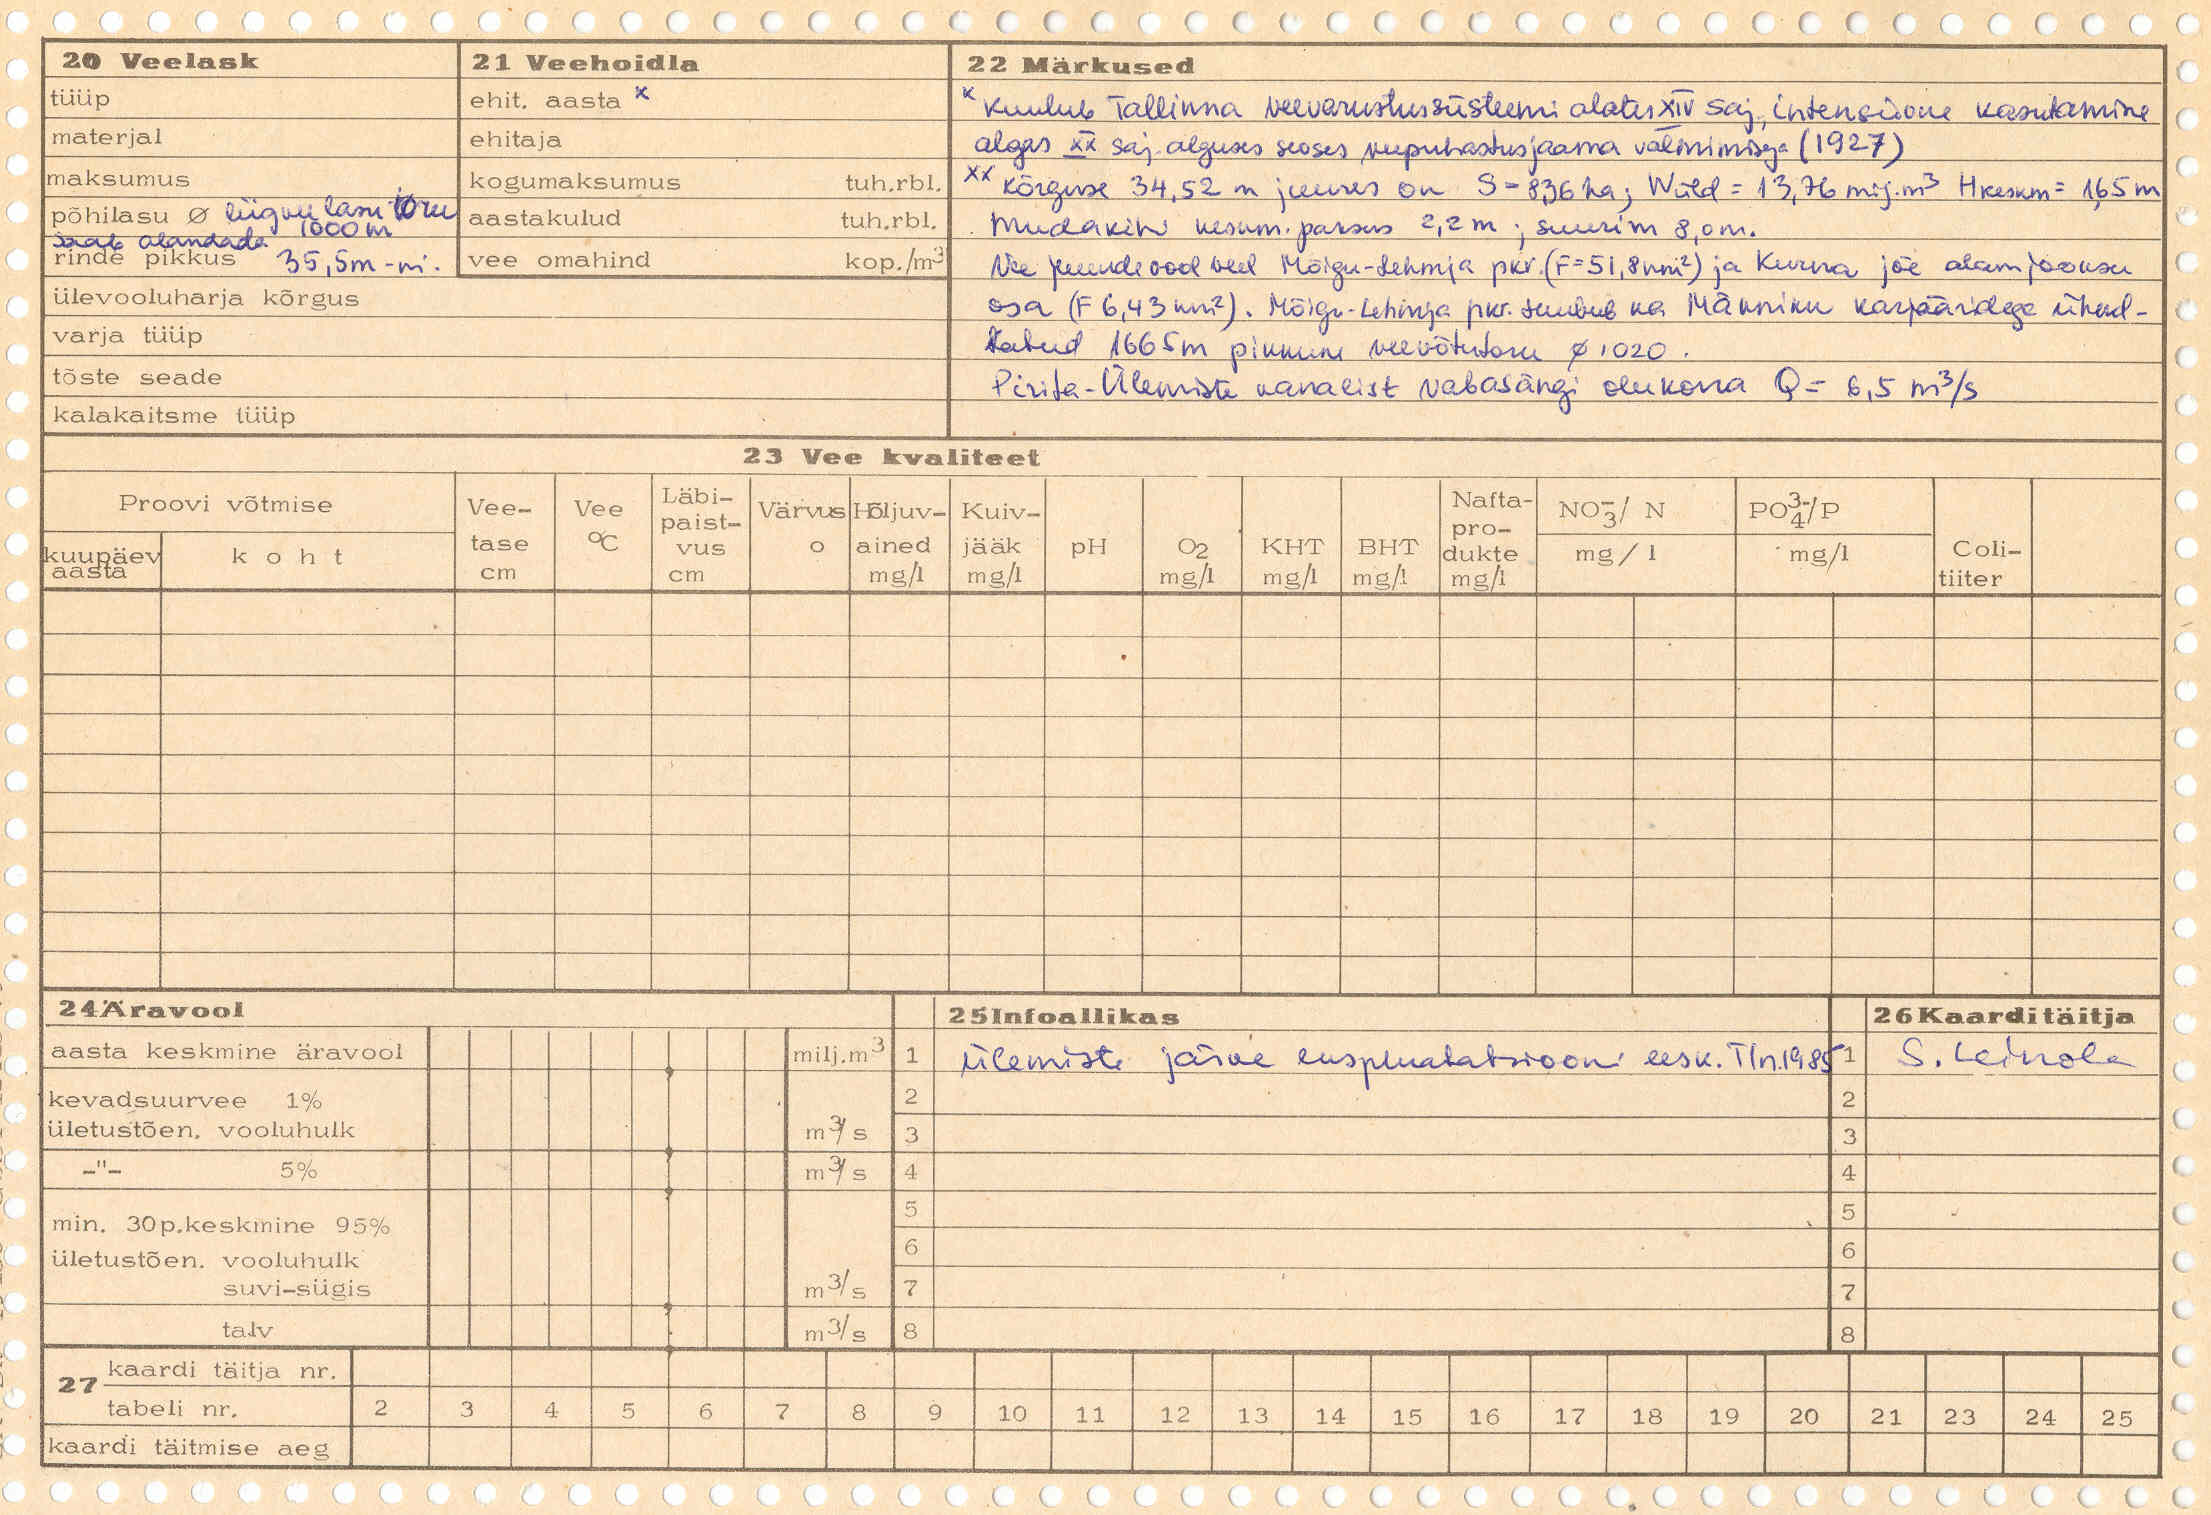 20 Veelask
tüüp
materjal
maksumus
põhilasu ø liigveelasu toru
1000 m
saab alandada
rinde pikkus 35,5m-ni.
ülevooluharja kõrgus
varja tüüp
tõste seade
kalakaitsme tüüp
21 Veehoidla
ehit. aasta x
ehitaja
kogumaksumus tuh.rbl.
aastakulud tuh.rbl.
vee omahind kop./m3
22 Märkused
x Kuulub Tallinna veevarustussüsteemi alates XIV saj, intensiivne kasutamine
algas XX saj. alguses seoses veepuhastusjaama valmimisega (1927)
xx kõrguse 34,52 m juures on S=836 ha; Wüld = 13,76 milj.m3 Hkeskm = 1,65 m
Mudakihi keskm. paksus 2,2 m; suurim 8,0 m.
Vee juurdevool veel Mõigu-Lehmja pkr. (F=51,8 km2) ja Kurna jõe alamjooksu
osa (F 6,43 km2). Mõigu-Lehmja pkr. suubub ka Männiku karjääridega ühend-
tatud 1665m pikkune veevõtutoru ø 1020.
Pirita-Ülemiste kanalist vabasängi olukorra Q = 6,5 m3/s
23 Vee kvaliteet
Proovi võtmise
kuupäev aasta
koht
Vee-tase cm
Vee °C
Läbi-paist-vus cm
Värvus o
Hõljuv-ained mg/l
Kuiv-jääk mg/l
pH
O2 mg/l
KHT mg/l
BHT mg/l
Nafta-pro-dukte mg/l
NO3-/ N mg/l
PO4 3-/P mg/l
Coli-tiiter
24 Äravool
aasta keskmine äravool milj.m3
kevadsuurvee 1%
ületustõen. vooluhulk m3/s
-"- 5% m3/s
min. 30p.keskmine 95%
ületustõen. vooluhulk
suvi-sügis m3/s
talv m3/s
25 Infoallikas
1 Ülemiste järve ekspluatatsiooni eesk. Tln.1985
2
3
4
5
6
7
8
26 Kaarditäitja
1 S. Leinola
2
3
4
5
6
7
8
27 kaardi täitja nr.
tabeli nr. 2 3 4 5 6 7 8 9 10 11 12 13 14 15 16 17 18 19 20 21 23 24 25
kaardi täitmise aeg